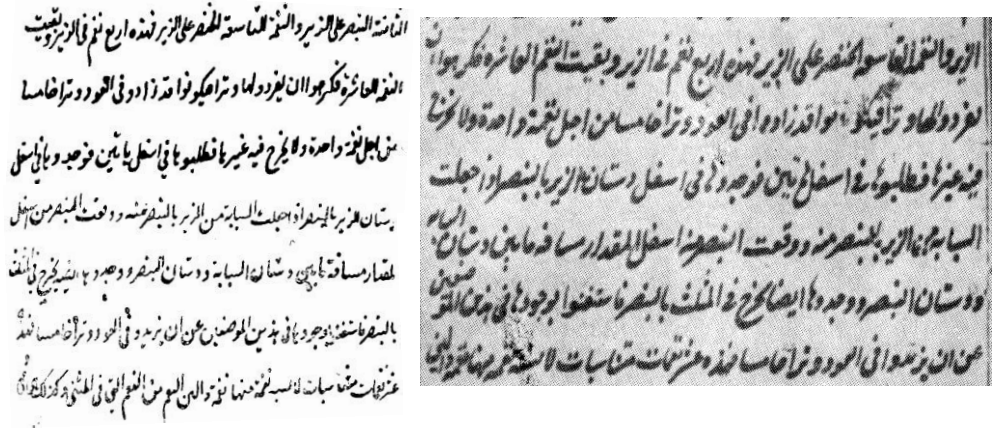 الثامنة البنصر على الزير والنغمة التاسعة الخنصر على الزير فهذه اربع نغم فى الزير وبقيت
النغمة العاشرة فكرهوا ان يفردوا لها وترا فيكونوا قد زادوا فى العود وترا خامسا
من اجل نغمة واحدة ولا يخرج فيه غيرها فطلبوها فى اسفل فوجدوها فى اسفل
دستان الزير بالبنصر اذا جعلت السبابة من الزير بالبنصر منه ووقعت البنصر من اسفل
لمقدار مسافة مابين دستان السبابة ودستان البنصر ووجدوها ايضا يخرج فى المثلث
بالبنصر فاستغنوا بوجودها فى هذين الموضعين عن ان يزيدوا فى العود وترا خامسا فهذه
عشر نغمات متناسبات نغمة منها نغمة اليم من النغم التى فى المثنى وكذلك
الزير والنغمة التاسعة الخنصر على الزير فهذه اربع نغم فى الزير وبقيت النغم العاشرة فكرهوا ان
يفردوا لها وترا قد زادوا فى العود وترا خامسا من اجل نغمة واحدة ولا يخرج
فيه غيرها فطلبوها فى اسفل فوجدوها فى اسفل دستان الزير بالبنصر اذا جعلت
السبابة من الزير بالبنصر منه ووقعت البنصر منه اسفل المقدار مسافه مابين دستان السبابه
ودستان البنصر ووجدوها ايضا يخرج فى المثلث بالبنصر فاستغنوا بوجودها فى هذين الموضعين
عن ان يزيدوا فى العود وترا خامسا فهذه عشر نغمات متناسبات منها نغمة